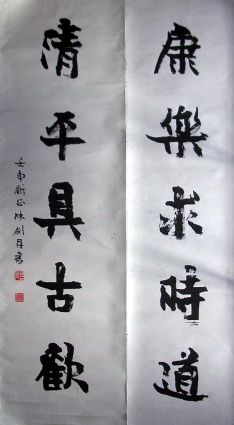 康樂求時道
清平具古歡
壬申新正林剑丹書